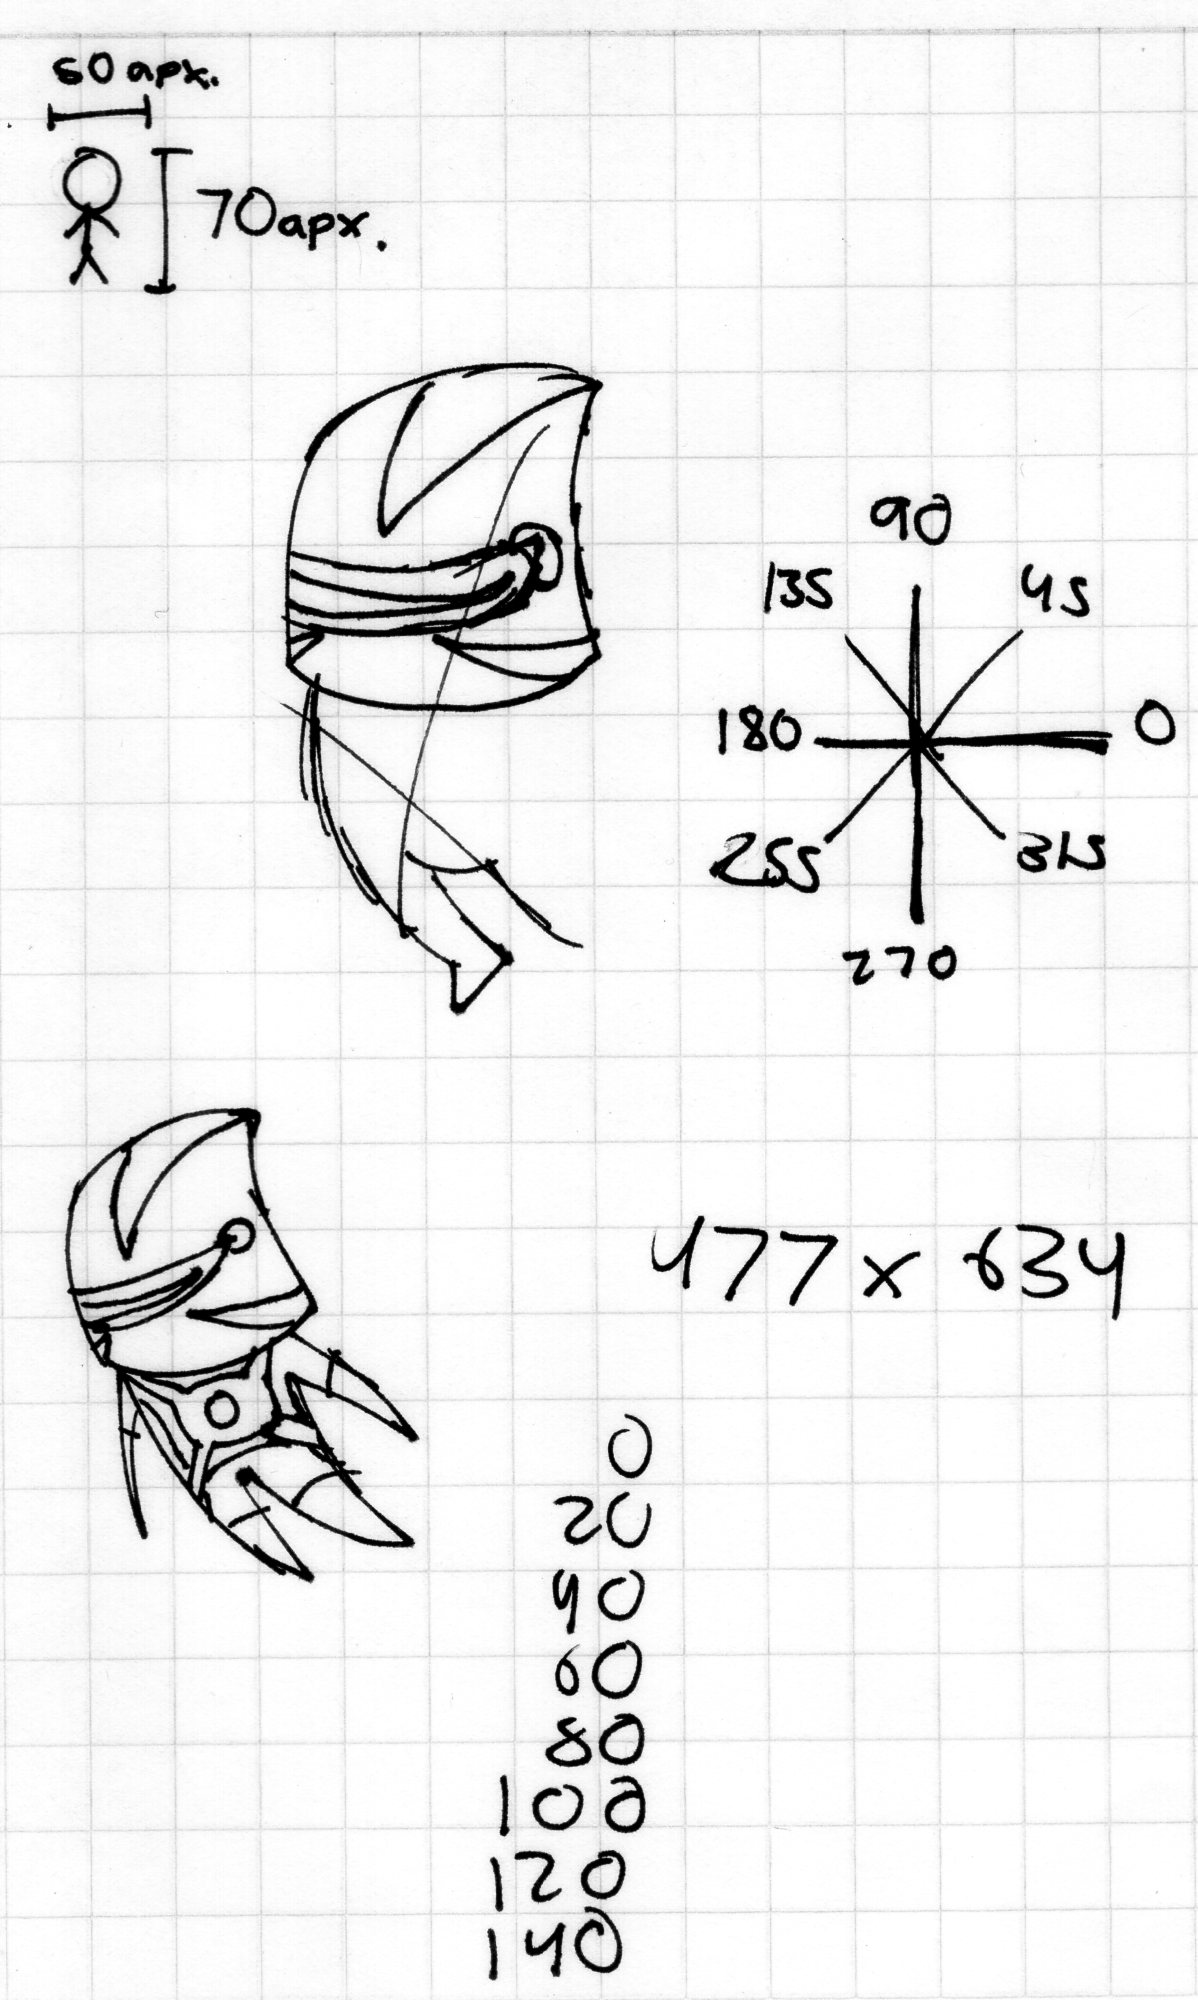 50 apx.
70apx.
90
135
45
180
0
255
315
270
477 x 634
0
20
40
60
80
100
120
140